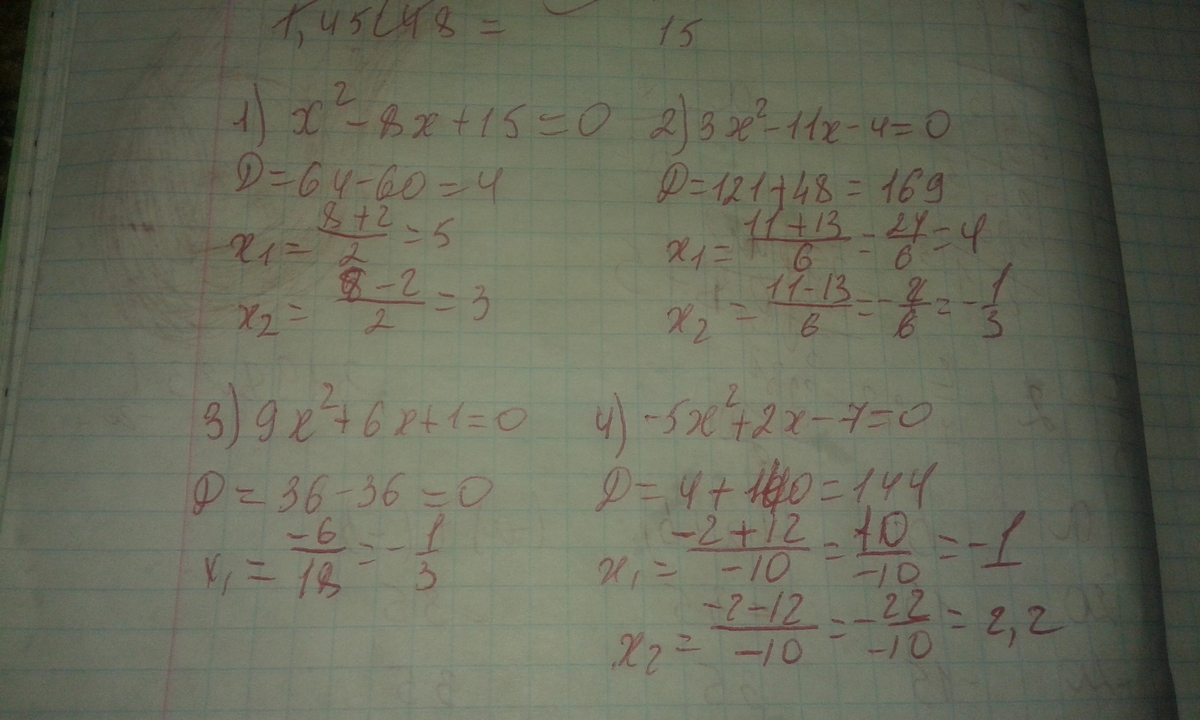 15
1) x² - 8x + 15 = 0
D = 64 - 60 = 4
x₁ = (8 + 2)/2 = 5
x₂ = (8 - 2)/2 = 3
2) 3x² - 11x - 4 = 0
D = 121 + 48 = 169
x₁ = (11 + 13)/6 = 24/6 = 4
x₂ = (11 - 13)/6 = -2/6 = -1/3
3) 9x² + 6x + 1 = 0
D = 36 - 36 = 0
x₁ = -6/18 = -1/3
4) -5x² + 2x - 7 = 0
D = 4 + 140 = 144
x₁ = (-2 + 12)/-10 = 10/-10 = -1
x₂ = (-2 - 12)/-10 = -22/-10 = 2,2